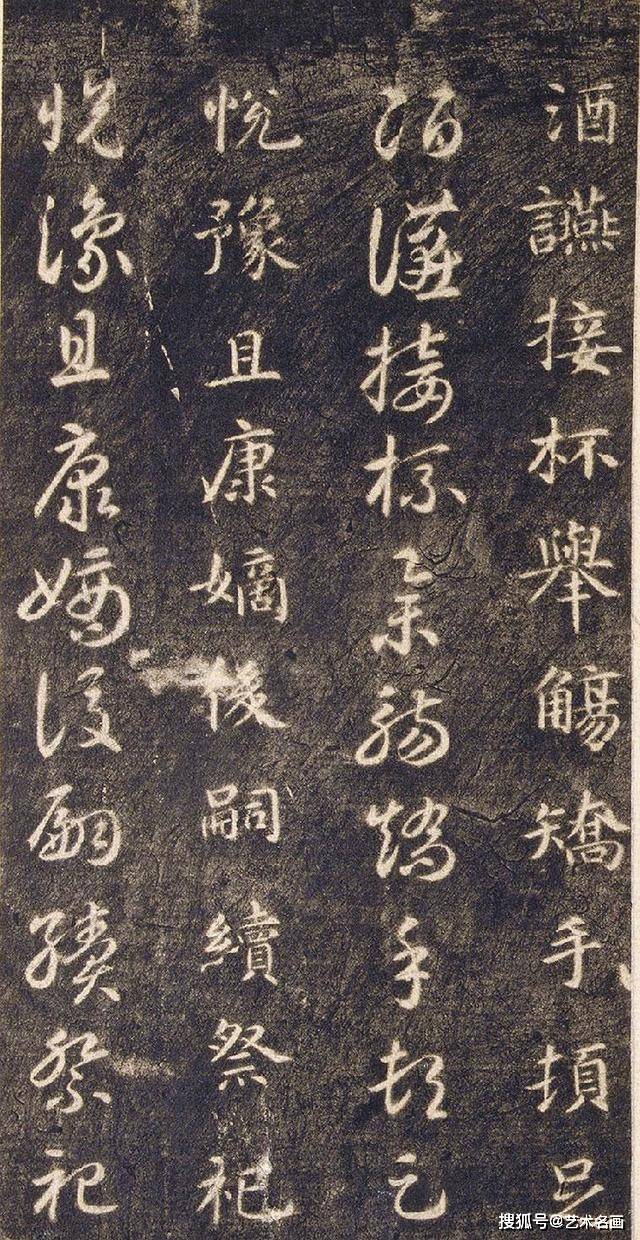 酒讌接杯舉觴矯手頓足
酒讌接杯舉觴矯手頓足
悅豫且康嫡後嗣續祭祀
悅豫且康嫡後嗣續祭祀
搜狐号@艺术名画